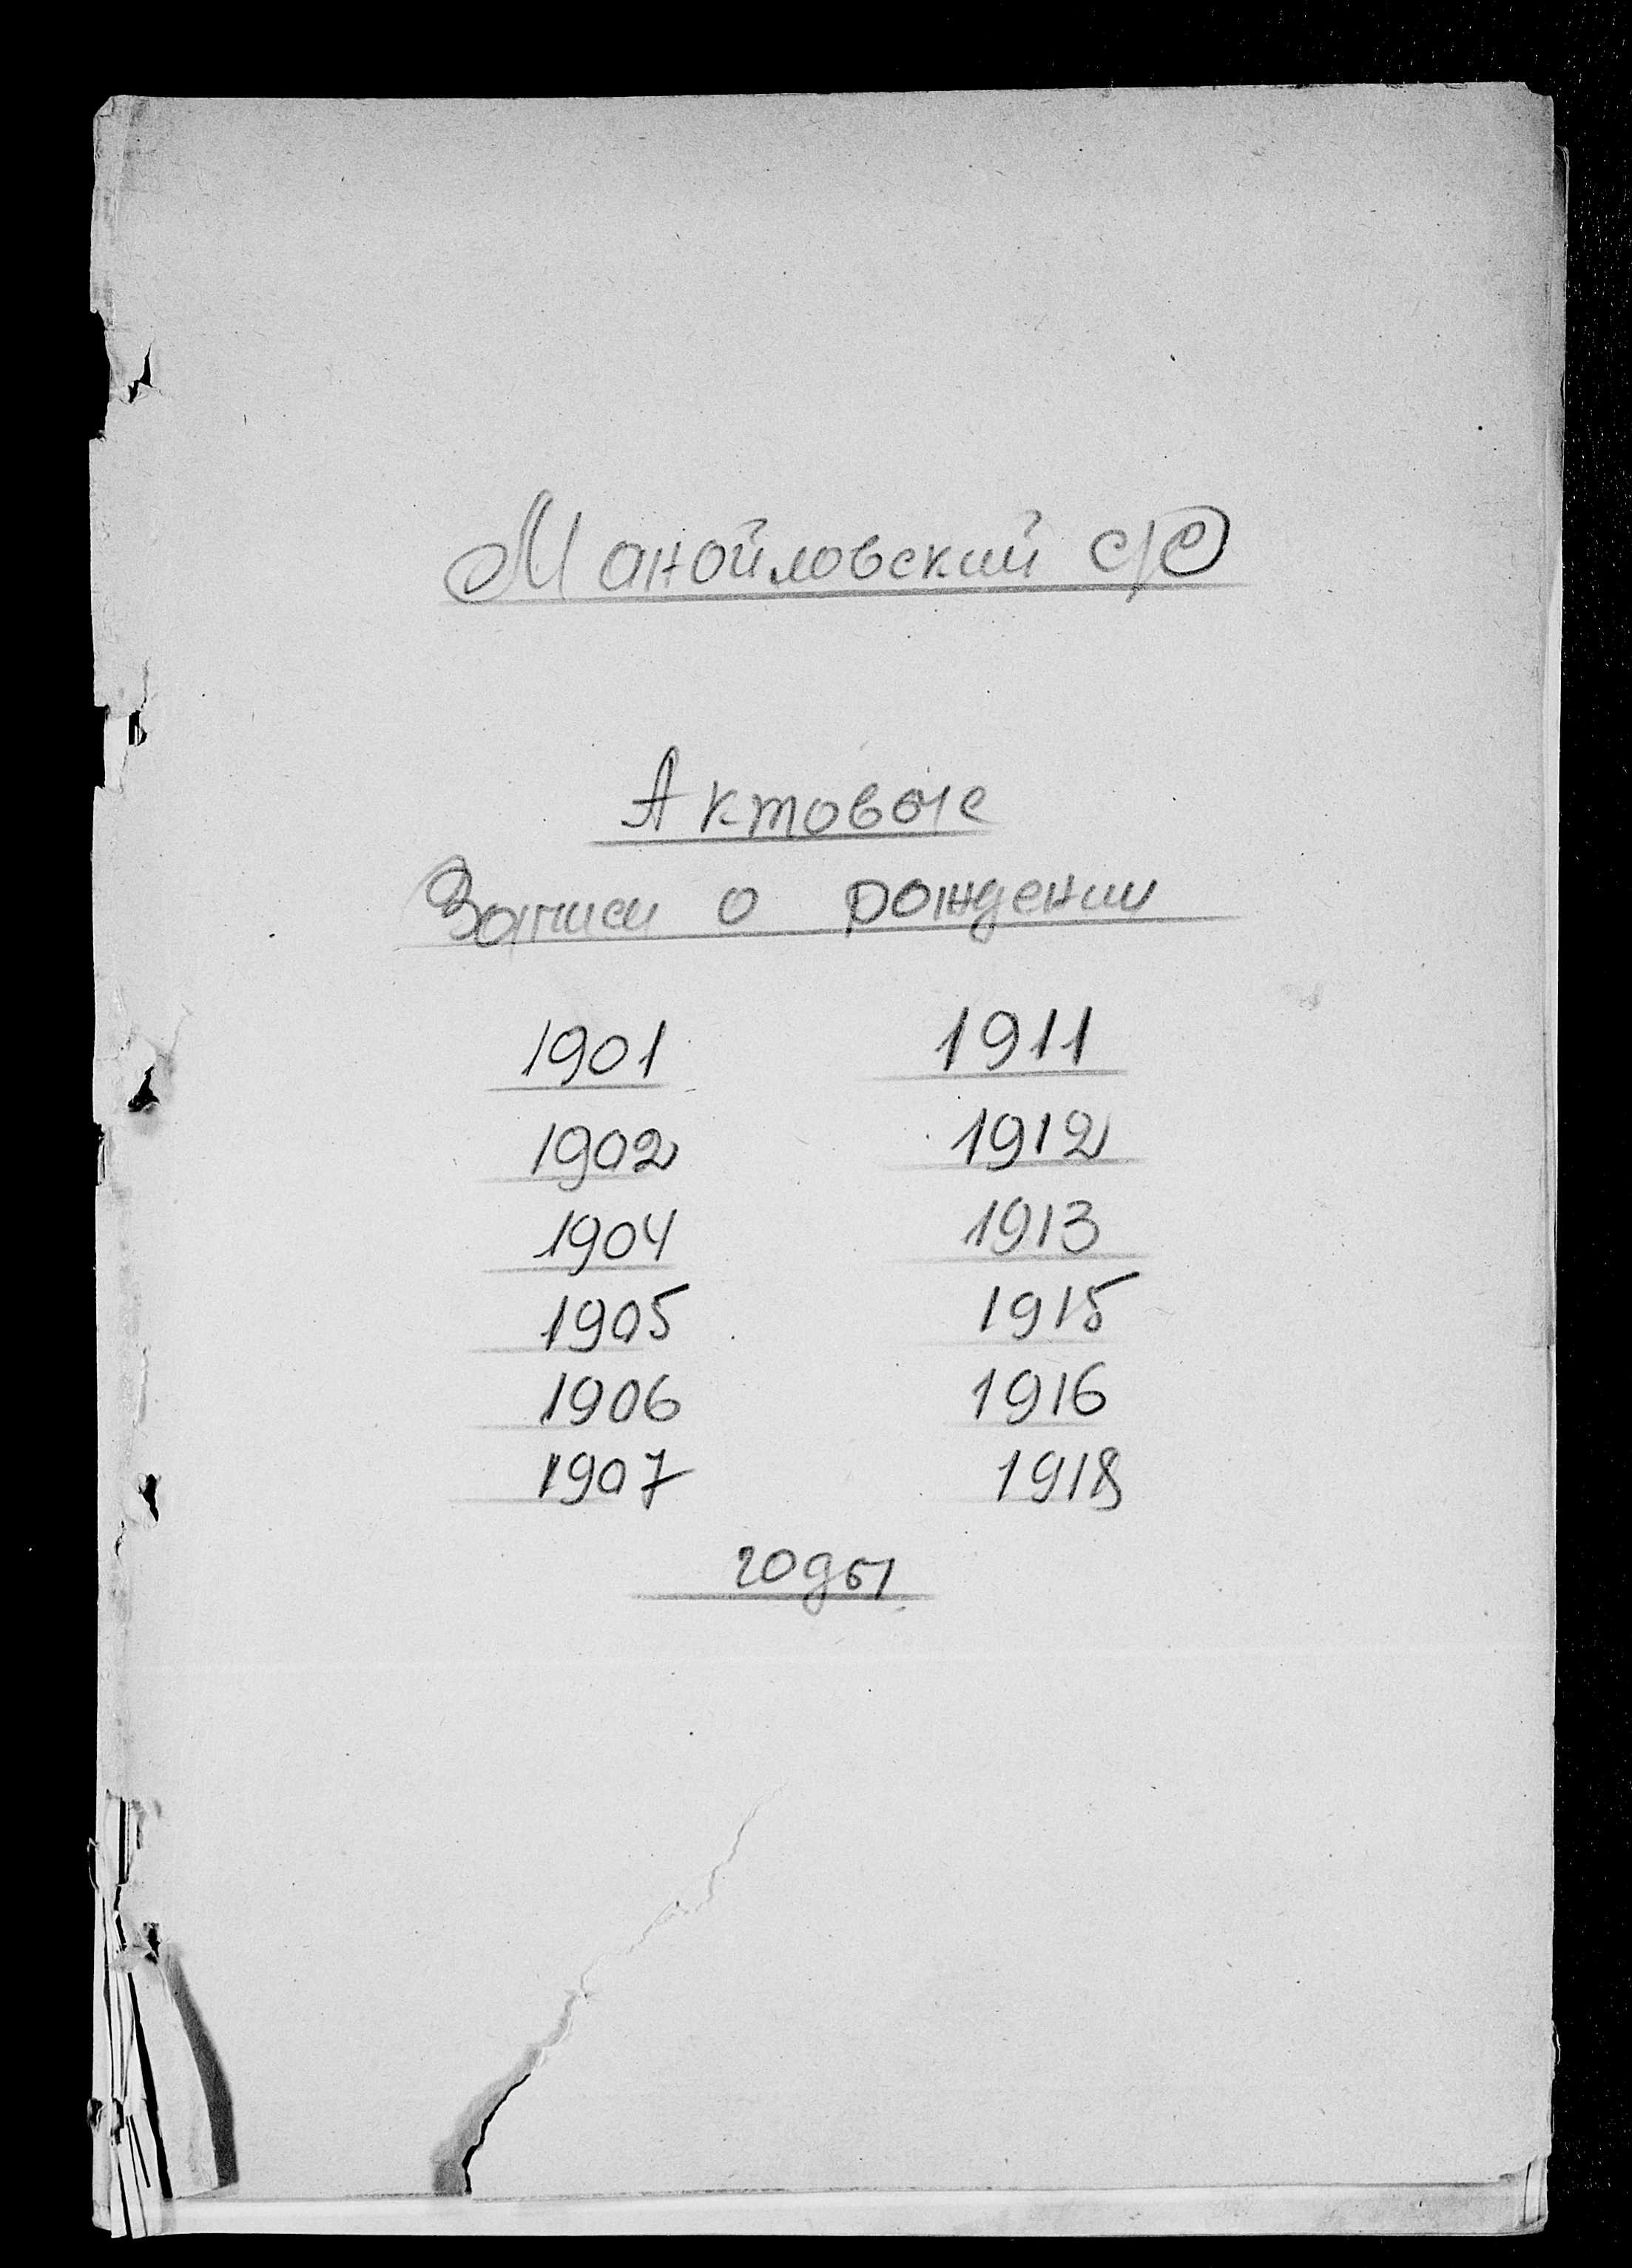 Манойловский с/С
Актовые
Записи о рождении
1901 1911
1902 1912
1904 1913
1905 1915
1906 1916
1907 1918
годы